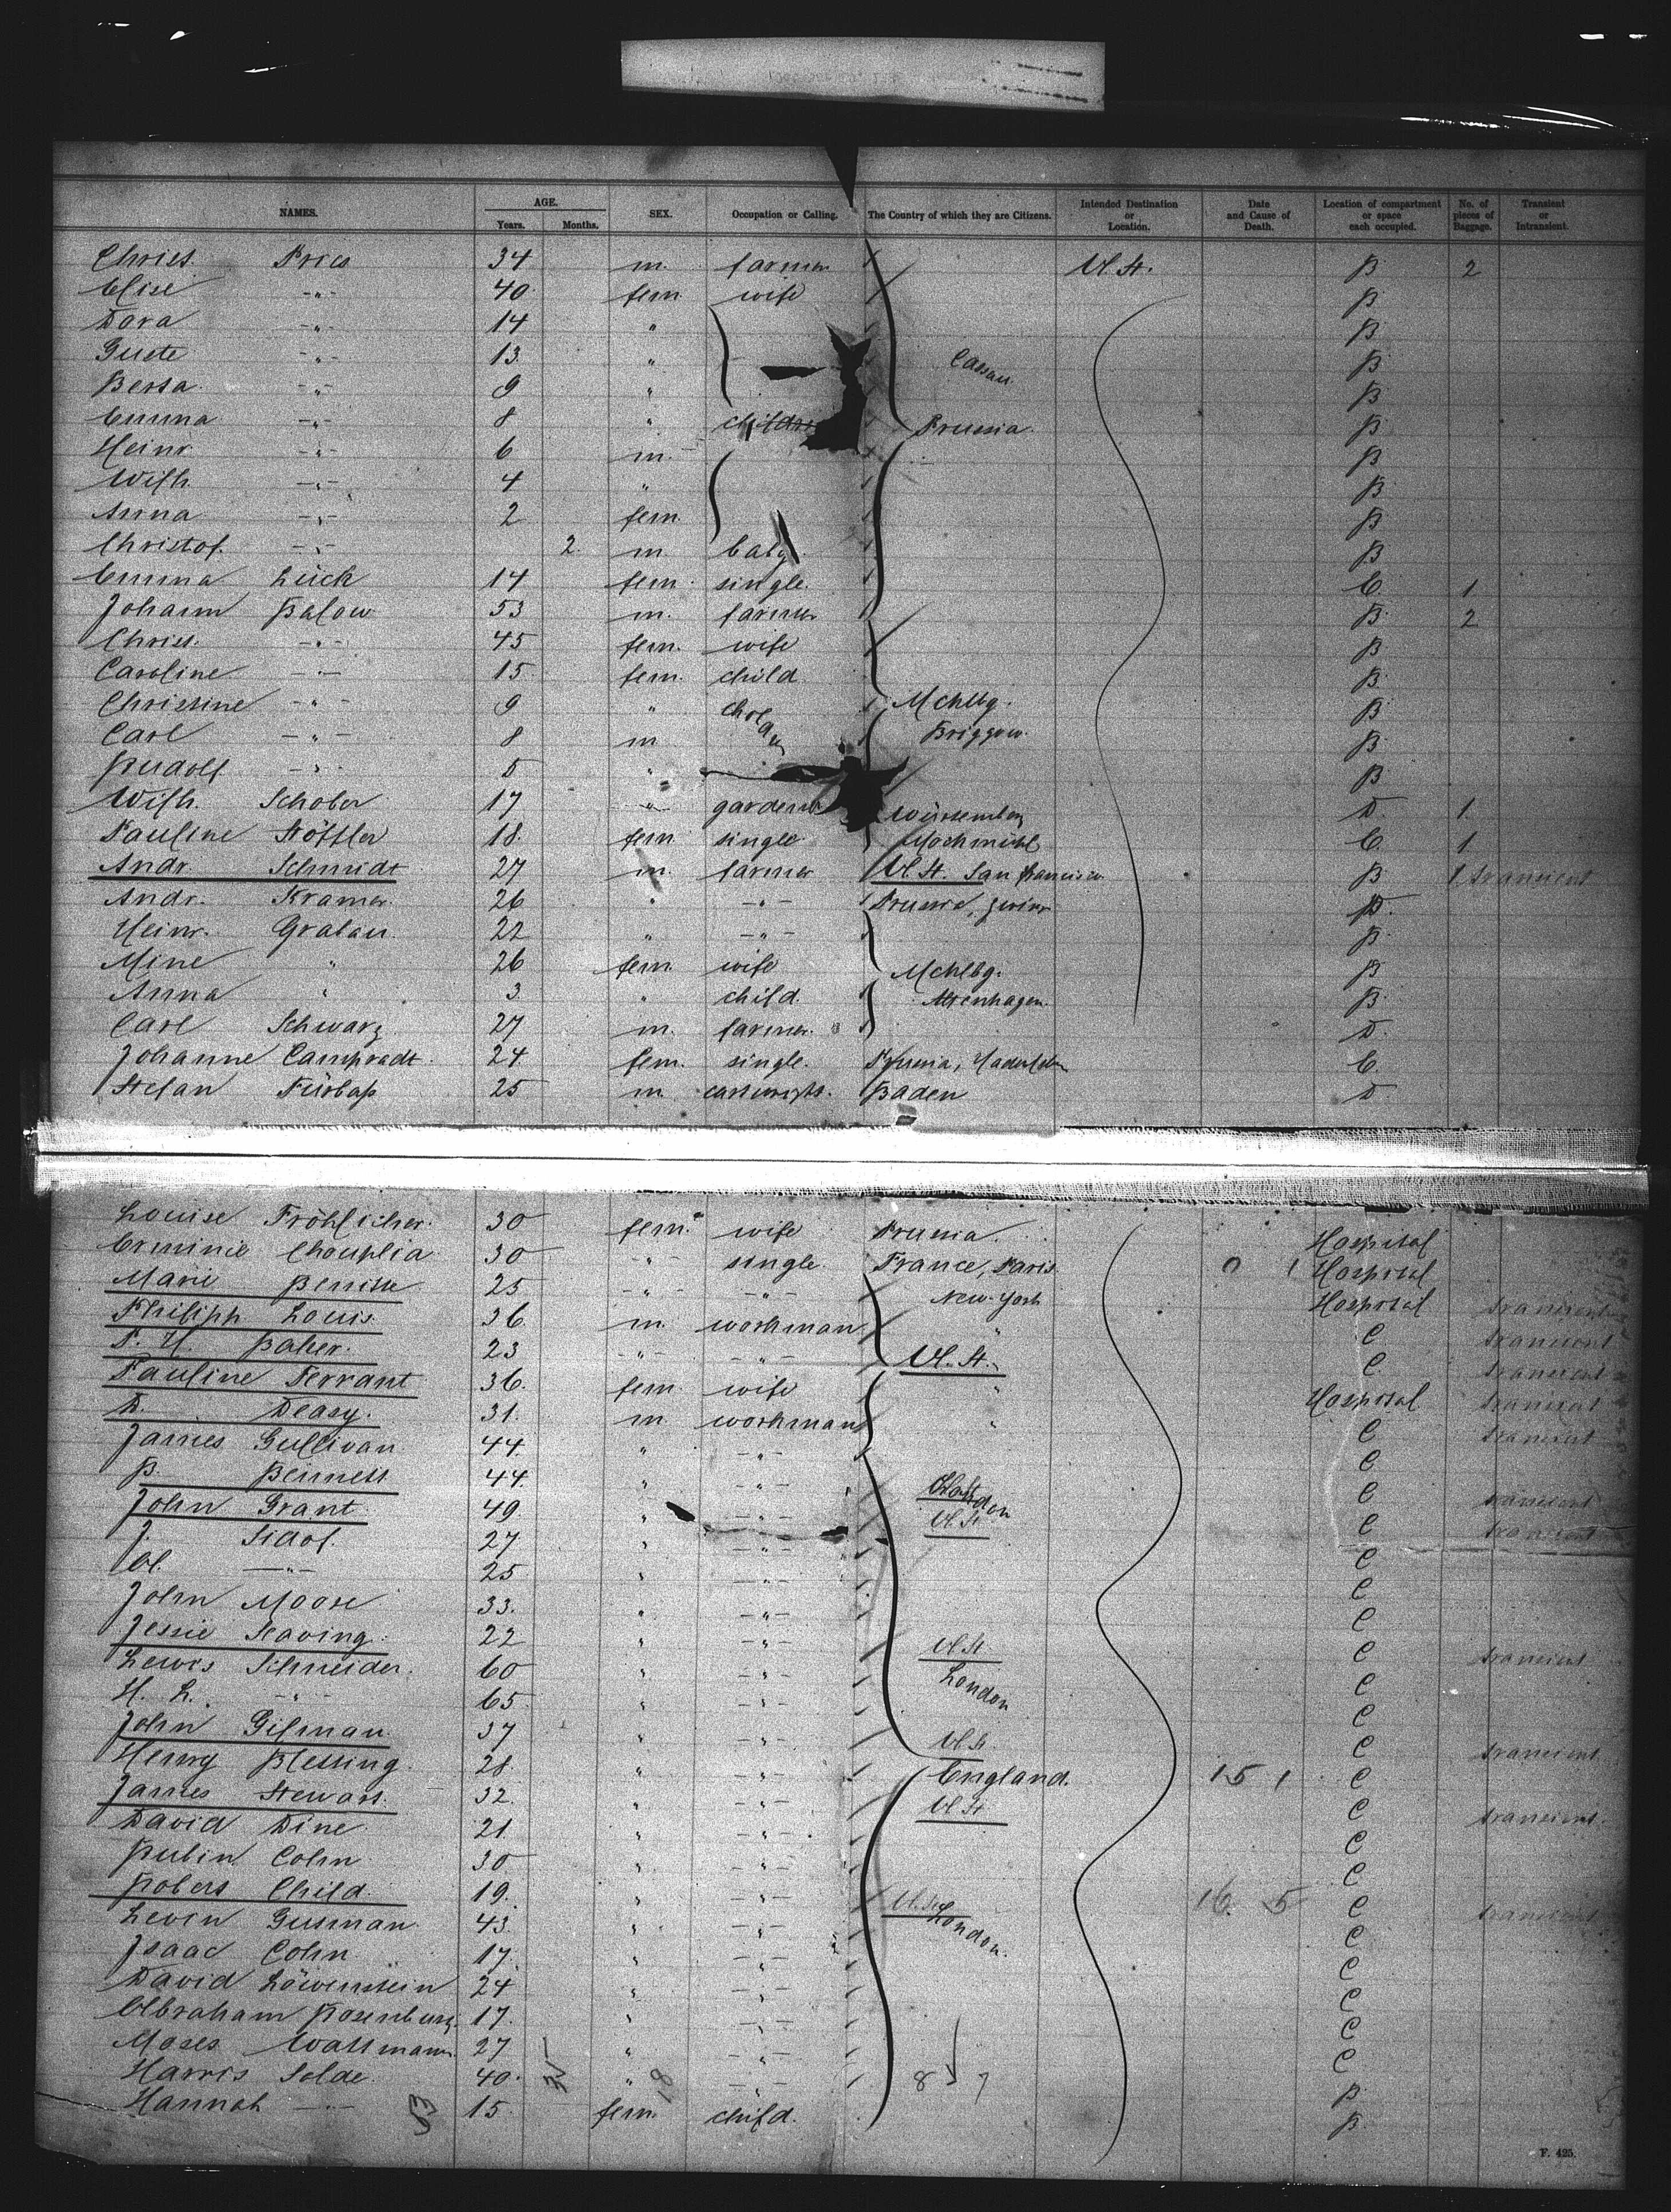 NAMES. AGE. Years. Months. SEX. Occupation or Calling. The Country of which they are Citizens. Intended Destination or Location. Date and Cause of Death. Location of compartment or space each occupied. No. of pieces of Baggage. Transient or Intransient.
Christ. Pries 34 m. farmer U. St. B 2
Elise -"- 40 fem. wife B
Dora -"- 14 " B
Guste -"- 13. " Cassau. B
Berta -"- 9 " B
Emma -"- 8 " Prussia. B
Heinr. -"- 6 m. B
Wilh. -"- 4 " B
Anna -"- 2 fem. B
Christof. -"- 2. m. baby. B
Emma Lück 14 fem. single. C. 1
Johann Balow 53 m. farmer B. 2
Christ. -"- 45 fem. wife B
Caroline -"- 15 fem. child B
Christine -"- 9 " Mchlbg. B
Carl -"- 8 m Briggow. B
Rudolf -"- 5 " B
Wilh. Schober 17 -"- gardener Würtemberg D. 1.
Pauline Stöffler 18. fem. single Möchmühl C. 1
Andr. Schmidt 27 m. farmer U. St. San Francisco B 1 transient
Andr. Kramer. 26 " -"- Prussia, D.
Heinr. Gralau 22 " -"- B
Mine " 26 fem. wife Mchlbg. B
Anna " 3. " child. B
Carl Schwarz 27 m. farmer. D.
Johanne Campradt. 24 fem. single. Prussia, C.
Stefan 25 m. Baden D.
Louise Fröhlicher. 30 fem. wife Prussia. Hospital
Erminie Chouplia 30 -"- single. France, Paris 0 1 Hospital
Marie 25 -"- -"- New-York Hospital transient
Philipp Louis. 36 m. workman " C transient
P. H. Baker. 23 -"- -"- U. St. C. transient
Pauline Ferrant 36. fem. wife " Hospital transient
D. Deasy. 31. m. workman " C transient
James Gullivan 44. " -"- C
B. Bennett 44. " -"- C transient
John Grant 49. " -"- U. St. C transient
J. Sidof. 27. " -"- C
A. -"- 25 " -"- C
John Moore 33. " -"- C
Jessie Seaving. 22 " -"- U. St. C transient
Lewis Schneider. 60 " -"- London C
H. L. -"- 65 " -"- C
John Gilman. 37 " -"- U. St. C transient.
Henry Blessing. 28. " -"- England. 15 1 C
James Stewart. 32. " -"- U. St. C transient.
David Dine 21. " -"- C
Rubin Cohn 30 " -"- C
Robert Child. 19. " -"- U. St. 16 5 C transient
Lewin Gusman. 43. " -"- London. C
Isaac Cohn 17. " -"- C
David Löwenstein 24 " -"- C
Abraham Rosenburg. 17. " -"- C
Moses Wattmann. 27 " -"- C
Harris Solde. 40. " -"- 8 7 B
Hannah -"- 15. fem. child. B
F. 425.